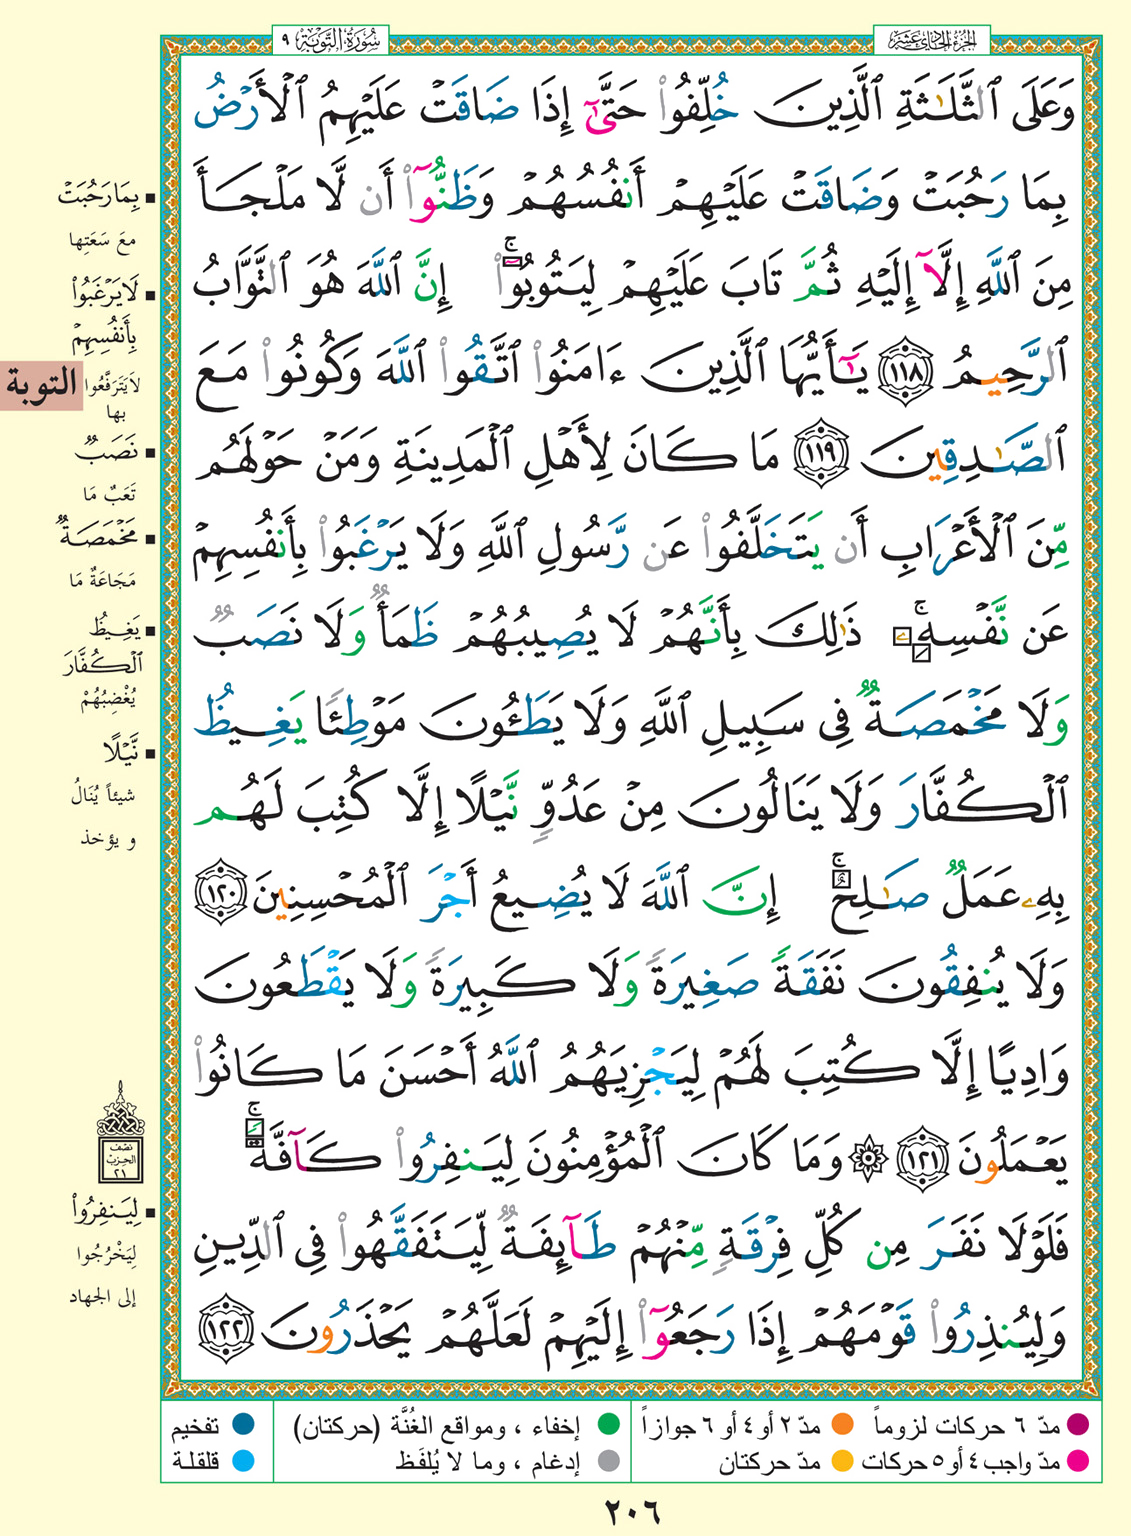 سُورَةُ التَّوْبَةِ ٩
الجُزْءُ الحَادِي عَشَر
وَعَلَى ٱلثَّلَـٰثَةِ ٱلَّذِينَ خُلِّفُوا۟ حَتَّىٰٓ إِذَا ضَاقَتْ عَلَيْهِمُ ٱلْأَرْضُ
بِمَا رَحُبَتْ وَضَاقَتْ عَلَيْهِمْ أَنفُسُهُمْ وَظَنُّوٓا۟ أَن لَّا مَلْجَأَ
مِنَ ٱللَّهِ إِلَّآ إِلَيْهِ ثُمَّ تَابَ عَلَيْهِمْ لِيَتُوبُوٓا۟ ۚ إِنَّ ٱللَّهَ هُوَ ٱلتَّوَّابُ
ٱلرَّحِيمُ ١١٨ يَـٰٓأَيُّهَا ٱلَّذِينَ ءَامَنُوا۟ ٱتَّقُوا۟ ٱللَّهَ وَكُونُوا۟ مَعَ
ٱلصَّـٰدِقِينَ ١١٩ مَا كَانَ لِأَهْلِ ٱلْمَدِينَةِ وَمَنْ حَوْلَهُم
مِّنَ ٱلْأَعْرَابِ أَن يَتَخَلَّفُوا۟ عَن رَّسُولِ ٱللَّهِ وَلَا يَرْغَبُوا۟ بِأَنفُسِهِمْ
عَن نَّفْسِهِۦ ۚ ذَٰلِكَ بِأَنَّهُمْ لَا يُصِيبُهُمْ ظَمَأٌ وَلَا نَصَبٌ
وَلَا مَخْمَصَةٌ فِى سَبِيلِ ٱللَّهِ وَلَا يَطَـُٔونَ مَوْطِئًا يَغِيظُ
ٱلْكُفَّارَ وَلَا يَنَالُونَ مِنْ عَدُوٍّ نَّيْلًا إِلَّا كُتِبَ لَهُم
بِهِۦ عَمَلٌ صَـٰلِحٌ ۚ إِنَّ ٱللَّهَ لَا يُضِيعُ أَجْرَ ٱلْمُحْسِنِينَ ١٢٠
وَلَا يُنفِقُونَ نَفَقَةً صَغِيرَةً وَلَا كَبِيرَةً وَلَا يَقْطَعُونَ
وَادِيًا إِلَّا كُتِبَ لَهُمْ لِيَجْزِيَهُمُ ٱللَّهُ أَحْسَنَ مَا كَانُوا۟
يَعْمَلُونَ ١٢١ ۞ وَمَا كَانَ ٱلْمُؤْمِنُونَ لِيَنفِرُوا۟ كَآفَّةً ۚ
فَلَوْلَا نَفَرَ مِن كُلِّ فِرْقَةٍ مِّنْهُمْ طَآئِفَةٌ لِّيَتَفَقَّهُوا۟ فِى ٱلدِّينِ
وَلِيُنذِرُوا۟ قَوْمَهُمْ إِذَا رَجَعُوٓا۟ إِلَيْهِمْ لَعَلَّهُمْ يَحْذَرُونَ ١٢٢
بِمَا رَحُبَتْ
مَعَ سَعَتِها
لَا يَرْغَبُوا۟
بِأَنفُسِهِمْ
لَا يَتَرَفَّعُوا
بها
التوبة
نَصَبٌ
تَعَبٌ مَا
مَخْمَصَةٌ
مَجَاعَةٌ مَا
يَغِيظُ
ٱلْكُفَّارَ
يُغْضِبُهُمْ
نَّيْلًا
شيئاً يُنَالُ
و يؤخذ
نصف
الحزب
٢١
لِيَنفِرُوا۟
لِيَخْرُجُوا
إلى الجهاد
مدّ ٦ حركات لزوماً
مدّ ٢ أو ٤ أو ٦ جوازاً
إخفاء ، ومواقع الغُنَّة (حركتان)
تفخيم
مدّ واجب ٤ أو ٥ حركات
مدّ حركتان
إدغام ، وما لا يُلفَظ
قلقلة
٢٠٦